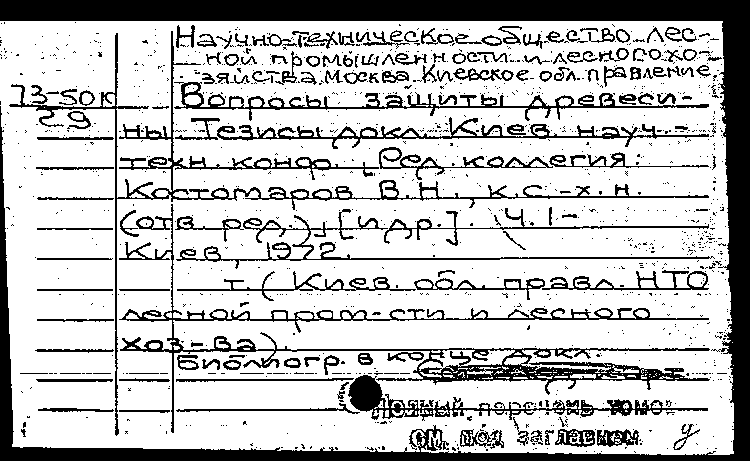 Научно-техническое общество лес-
ной промышленности и лесного хо-
зяйства. Москва. Киевское обл. правление.
73-50к
29
Вопросы защиты древеси-
ны. Тезисы докл. Киев. науч.-
техн. конф. [Ред. коллегия:
Костомаров В.Н., к.с.-х.н.
(отв. ред.)] [и др.]. Ч. 1-
Киев, 1972.
т. (Киев. обл. правл. НТО
лесной пром-сти и лесного
хоз-ва).
Библиогр. в конце докл.
Полный перечень томов
см. под заглавием
у